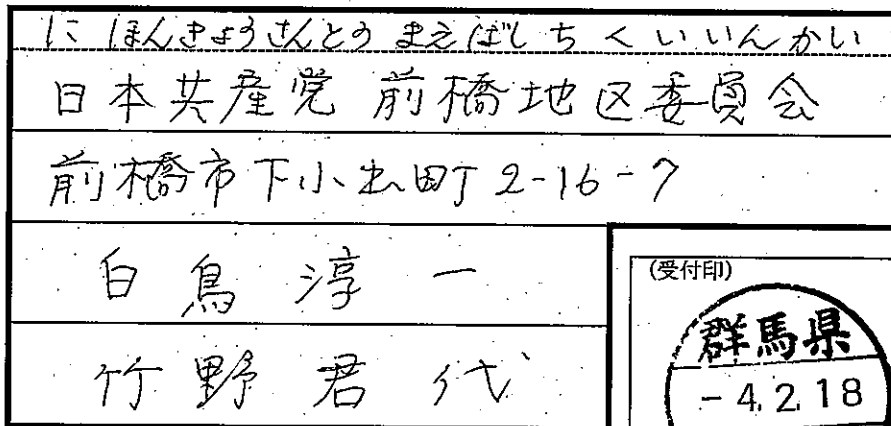 にほんきょうさんとう まえばしちくいいんかい
日本共産党 前橋地区委員会
前橋市下小出町2-16-7
白鳥 淳一
竹野 君代
(受付印)
群馬県
-4.2.18